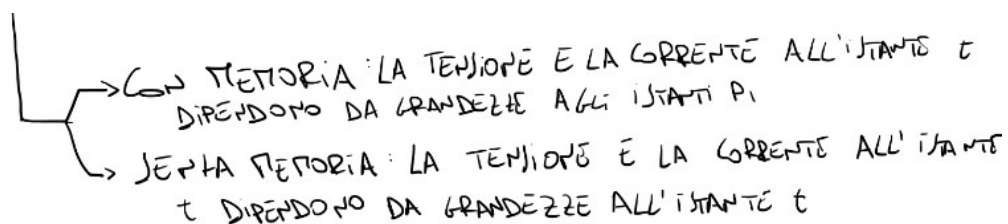 CON MEMORIA: LA TENSIONE E LA CORRENTE ALL'ISTANTE t
DIPENDONO DA GRANDEZZE AGLI ISTANTI P1
SENZA MEMORIA: LA TENSIONE E LA CORRENTE ALL'ISTANTE
t DIPENDONO DA GRANDEZZE ALL'ISTANTE t